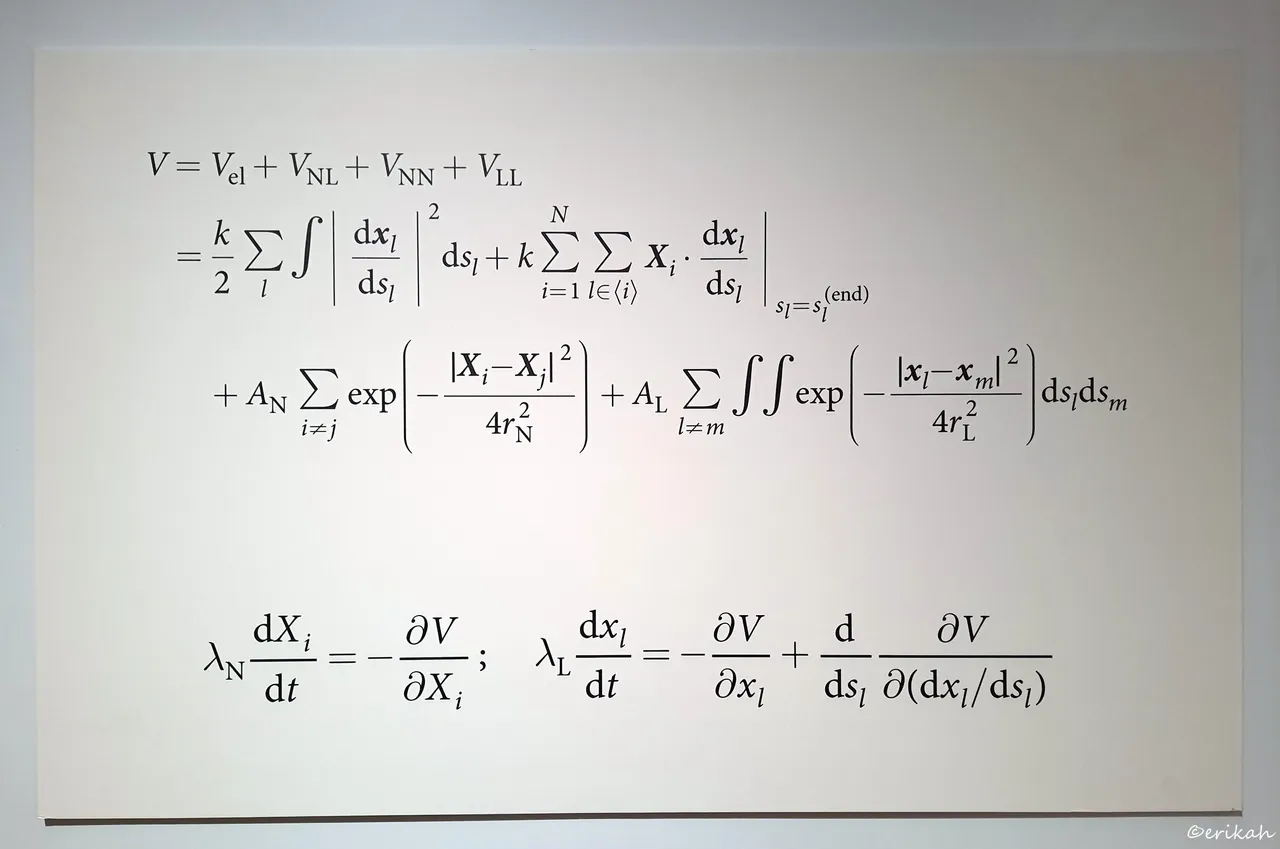 V = V_el + V_NL + V_NN + V_LL
= \frac{k}{2} \sum_l \int \left| \frac{d\boldsymbol{x}_l}{ds_l} \right|^2 ds_l + k \sum_{i=1}^{N} \sum_{l∈⟨i⟩} \boldsymbol{X}_i · \frac{d\boldsymbol{x}_l}{ds_l} \Big|_{s_l=s_l^{(end)}}
+ A_N \sum_{i≠j} exp\left( -\frac{|\boldsymbol{X}_i - \boldsymbol{X}_j|^2}{4r_N^2} \right) + A_L \sum_{l≠m} \int\int exp\left( -\frac{|\boldsymbol{x}_l - \boldsymbol{x}_m|^2}{4r_L^2} \right) ds_l ds_m
λ_N \frac{dX_i}{dt} = -\frac{∂V}{∂X_i} ; λ_L \frac{dx_l}{dt} = -\frac{∂V}{∂x_l} + \frac{d}{ds_l} \frac{∂V}{∂(dx_l/ds_l)}
©erikah